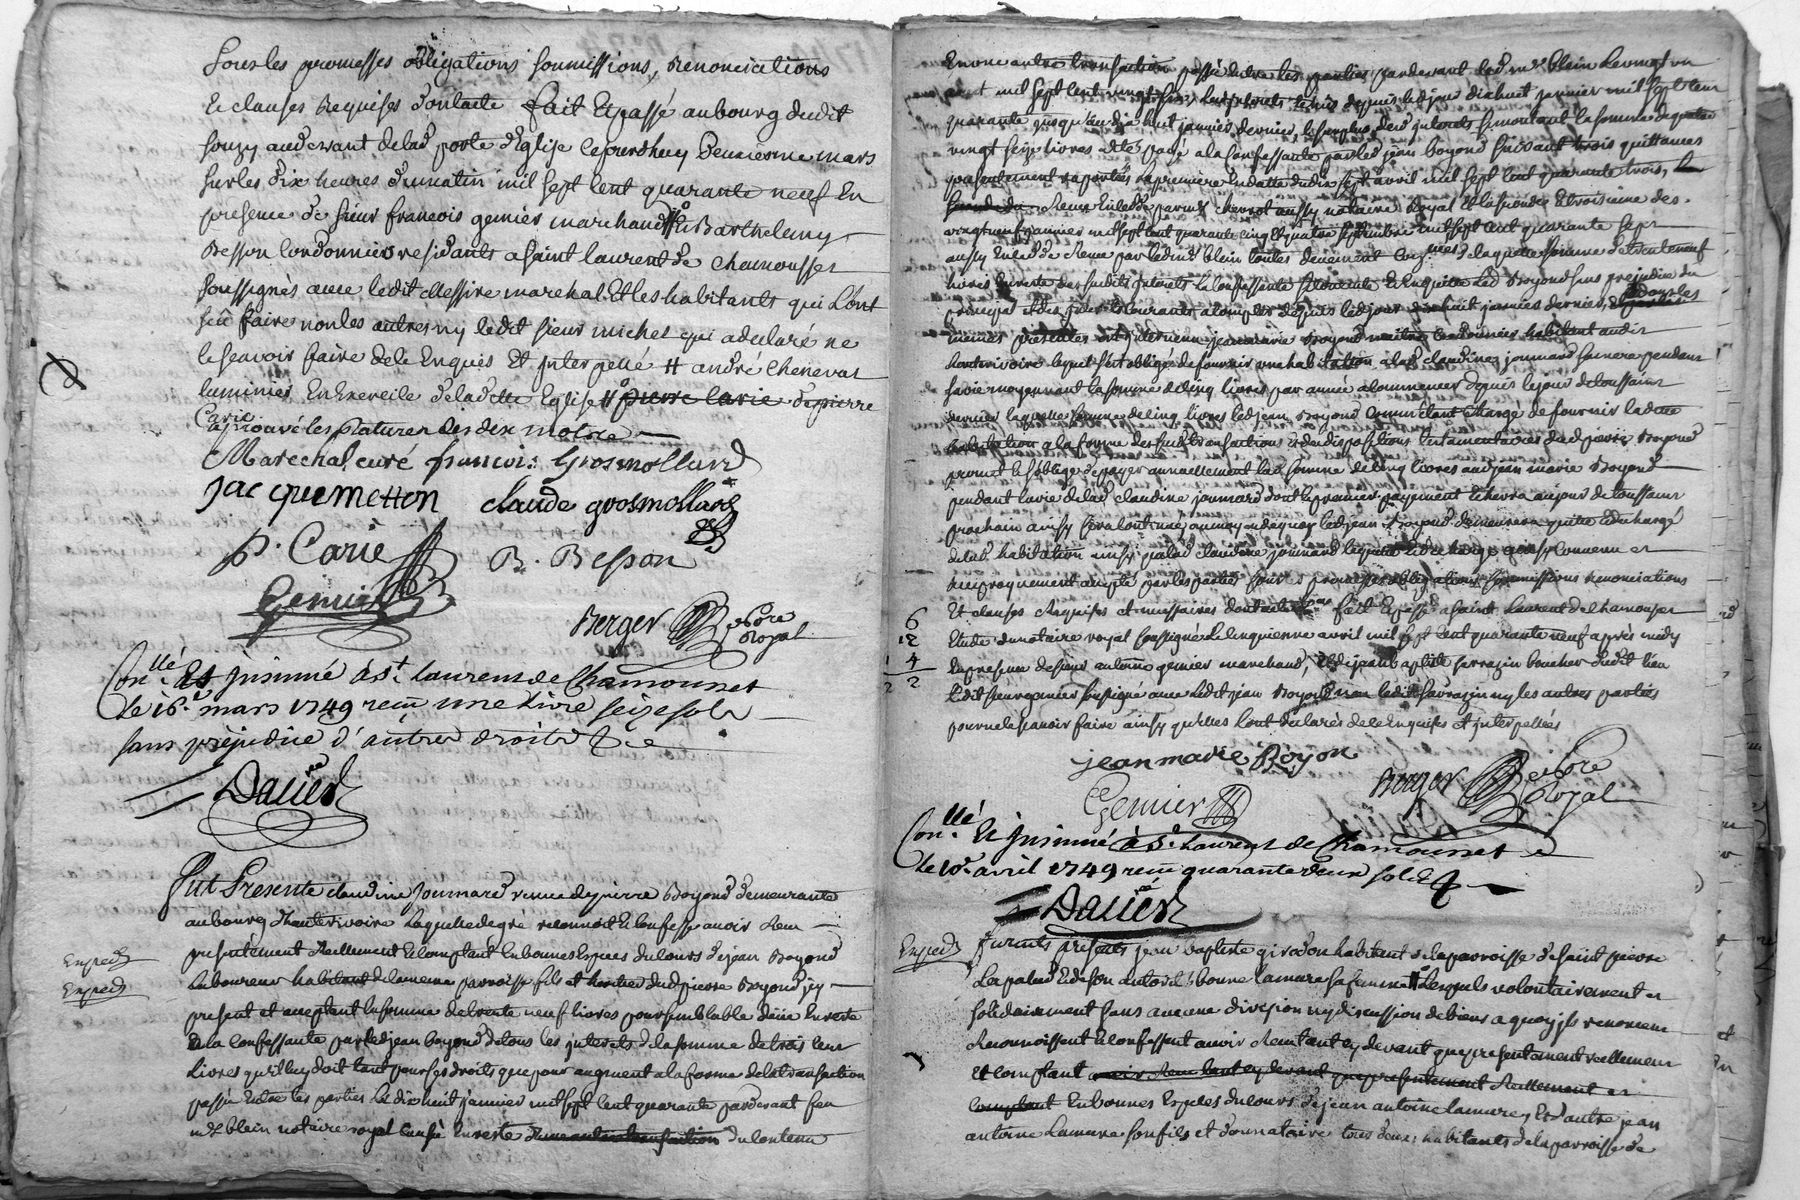 Sous les promesses obligations soumissions, Renonciations
Et clauses Requises dont acte fait Et passé au bourg dudit
souzy au devant de lad porte d'Eglise cejourdhuy Deuxiesme mars
sur les dix heures du matin mil sept Cent quarante neuf En
presence de sieur francois gemier marchand Et Barthelemy
Besson Cordonnier residants a saint laurent de chamousset
soussignés avec ledit Messire marechal Et les habitants qui L'ont
sçû faire non les autres ny ledit sieur michet qui a declaré ne
le scavoir faire de ce Enquis Et Interpellé # andré chenevat
luminier En Exercice de ladette Eglise # pierre carie depierre
Carie
aprouvé les Ratures des dix mots
Marechal curé francois Grosmollard
jacquemetton claude grosmollard
P. Carie B. Besson
Gemier
Berger No.re Royal
Con.llé Et jnsinué à St. Laurens de Chamousset
le 16.e mars 1749 reçu une Livre seize sols
sans prejudice d'autres droits
Davier
Fut Presente claudine Jommard veuve de pierre Boyond demeurante
au bourg d'hauterivoire Laquelle de gré reconnoit Et Confesse avoir Receu
presentement Reellement Et Comptant En bonnes Especes du Cours de jean Boyond
Laboureur habitant de la meme parroisse fils et heritier dud pierre Boyond jcy
present et acceptant la somme de trente neuf livres pour semblable düe En reste
a la Confessante par led jean boyond de tous les jnterets de la somme de trois Cent
Livres qu'il luy doit tant pour ses droits que pour augment a la forme de la transaction
passée Entre les parties Le dix huit janvier mil sept Cent quarante pardevant feu
m.e blein notaire royal En reste d'une autre transaction du Contenu
Exped
Exped
En une autre transaction passée Entre les parties pardevant led m.e blein Le vingt un
aout mil sept Cent vingt six, Les jnterets depuis led jour dix huit janvier mil sept Cent
quarante jusqu'au dix huit janvier dernier, le surplus desd jnterets se montant la somme de quatre
vingt seize livres a été payé a la Confessante par led jean boyond suivant trois quittances
presentement raportées La premiere En datte du dix sept avril mil sept Cent quarante trois,
Receue par m.e chervot aussy notaire Royal Et la seconde Et troisieme des
vingt neuf janvier mil sept Cent quarante cinq Et quatre septembre mil sept Cent quarante sept
aussy Receue par ledit m.e blein toutes deuement de laquelle somme de trente neuf
livres En reste des susdits jnterets la Confessante se Contente Et En quitte led Boyond sans prejudice du
principal et des jnterets Courants a Compter depuis led jour dix huit janvier dernier,
memes presentes est jntervenu jean marie Boyond maitre Cordonnier habitant audit
hauterivoire lequel s'est obligé de fournir une habitation a lad claudine jommard sa mere pendant
sa vie moyennant la somme de Cinq livres par année a Commencer depuis le jour de toussaint
dernier laquelle somme de Cinq livres led jean Boyond Comme Etant Chargé de fournir ladite
habitation a la forme des susd transactions et des dispositions testamentaires dud pierre Boyond
promet Et s'oblige de payer annuellement lad somme de Cinq livres aud jean marie Boyond
pendant la vie de lad claudine jommard dont le premier payement Echerra au jour de toussaint
prochain ainsy Continuer au moyen de quoy led jean Boyond demeurera quitte Et dechargé
de lad habitation ainsy que lad claudine jommard l'en quitte Et decharge ainsy Convenu et
reciproquement accepté par les parties sous les promesses obligations soumissions renonciations
Et clauses Requises et necessaires dont acte fait Et passé a saint Laurent de Chamousset
Etude du notaire royal soussigné Le cinquieme avril mil sept Cent quarante neuf après midy
En presence de sieur antoine gemier marchand, Et de jean baptiste sarrazin boucher dudit lieu
Ledit sieur gemier soussigné avec ledit jean Boyond non ledit sarrazin ny les autres parties
pour ne le scavoir faire ainsy qu'elles l'ont declarés de ce Enquises Et jnterpellées
6
12
4
2 2
jean marie Boyon
Gemier Berger No.re Royal
Con.llé Et jnsinué à St. Laurens de Chamousset
le 10.e avril 1749 reçu quarante deux sols
Davier
Exped
Furents presents jean baptiste girodon habitant de la parroisse de saint pierre
La palud Et de son autorité bonne Lamure sa femme # Lesquels volontairement et
solidairement sans aucune division ny discussion de biens a quoy jls renoncent
Reconnoissent Et Confessent avoir Receu tant cy devant que presentement reellement
Et Comptant avoir Receu tant cy devant que presentement Reellement et
Comptant En bonnes Especes du Cours de jean antoine Lamure, Et d'autre jean
antoine Lamure son fils et donnataire tous deux habitants de la parroisse de